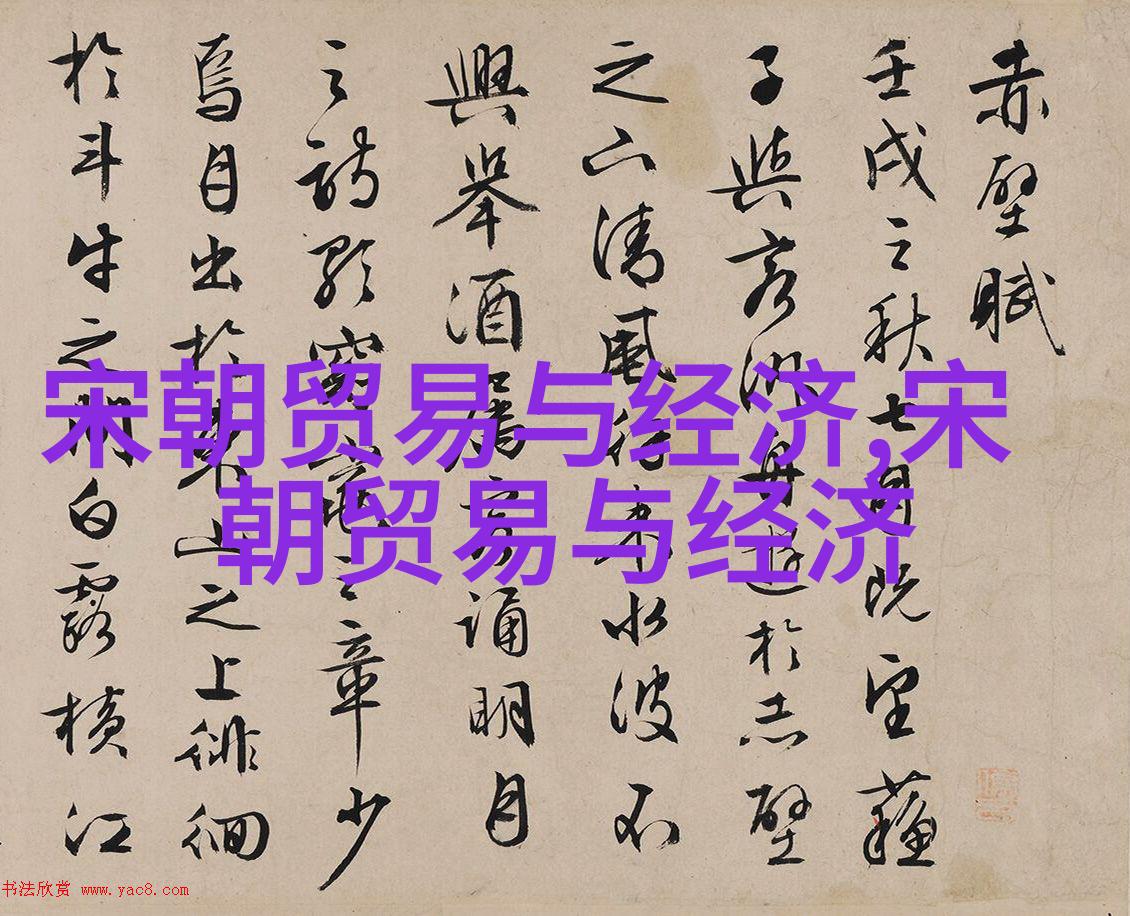 赤壁賦
壬戌之秋七月既望蘓
子與客泛舟遊於赤壁
之下清風徐來水波不
興舉酒屬客誦明月
之詩歌窈窕之章少
焉月出於東山之上徘徊
於斗牛之間白露橫江
宋朝贸易与经济,宋
朝贸易与经济
书法欣赏 www.yac8.com